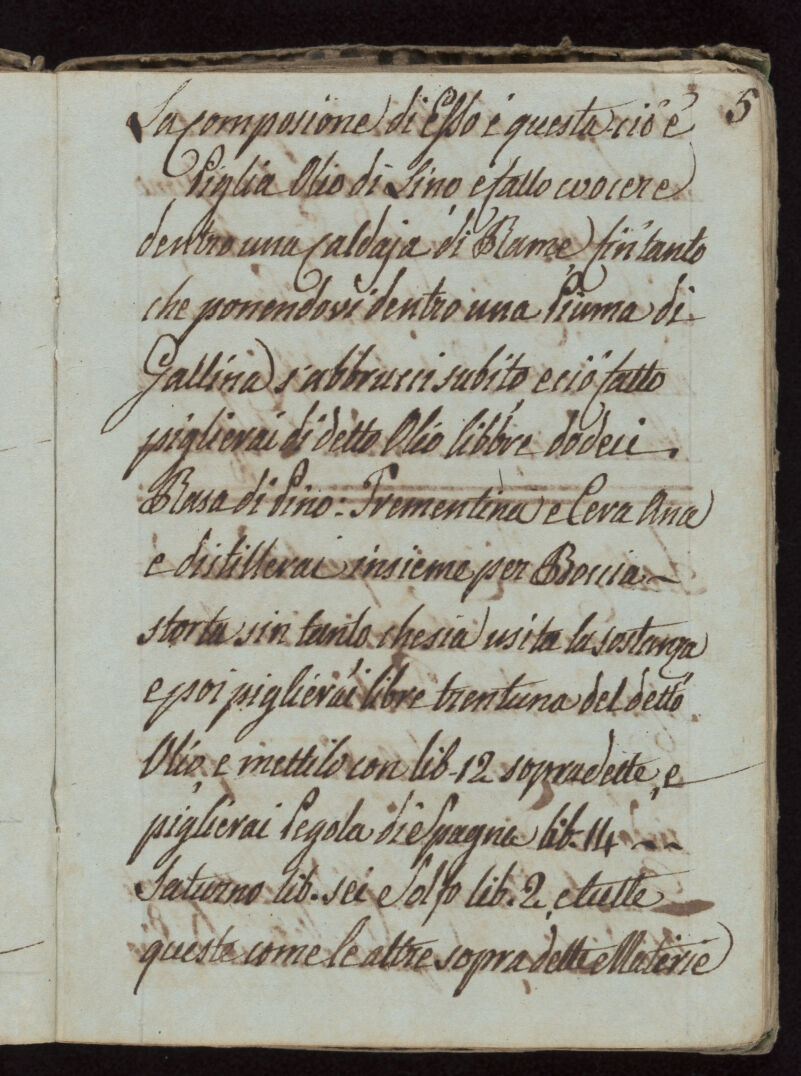 5
La composizione di esso é questa ció é
Piglia Olio di Lino e fallo cuocere
dentro una Caldaja di Rame sin tanto
che ponendovi dentro una Piuma di
Gallina s'abbrucci subito e ció fatto
piglierai di detto Olio libbre dodeci.
Rasa di Pino: Trementina e Cera Ana
e distillerai insieme per Boccia
storta sin tanto che sia usita la sostanza
e poi piglierai libre trentuna del detto
Olio e mettilo con lib. 12 sopradette, e
piglierai Pegola di Spagna lib. 14
Saturno lib. sei e Solfo lib. 2, e tutte
queste come le altre sopradette Materie